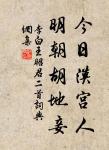 今日漢宮人
明朝胡地妾
李白王昭君二首詞典
網集